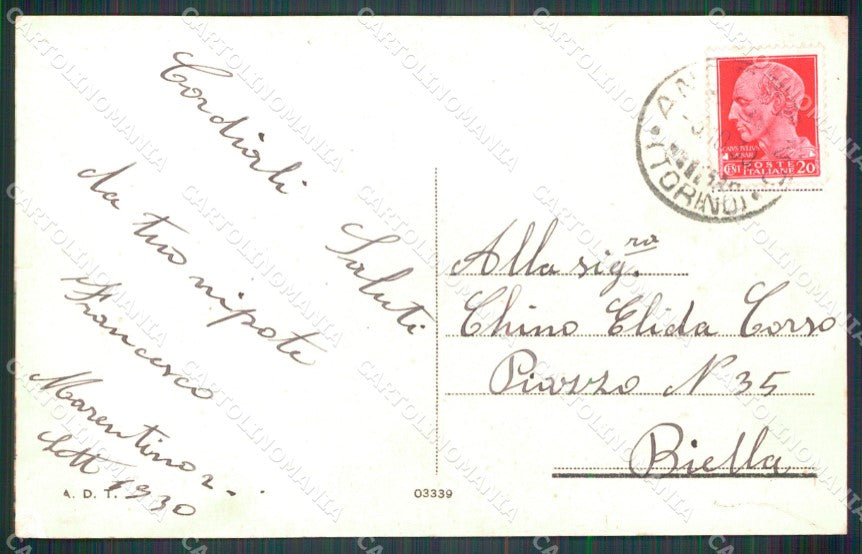 Cordiali Saluti
da tuo nipote
Francesco
Marentino 2
Sett 1930
A. D. T.
03339
(TORINO)
POSTE
ITALIANE
CENT
20
Alla sig.ra
Chino Elida Corso
Piazzo N 35
Biella
CARTOLINOMANIA